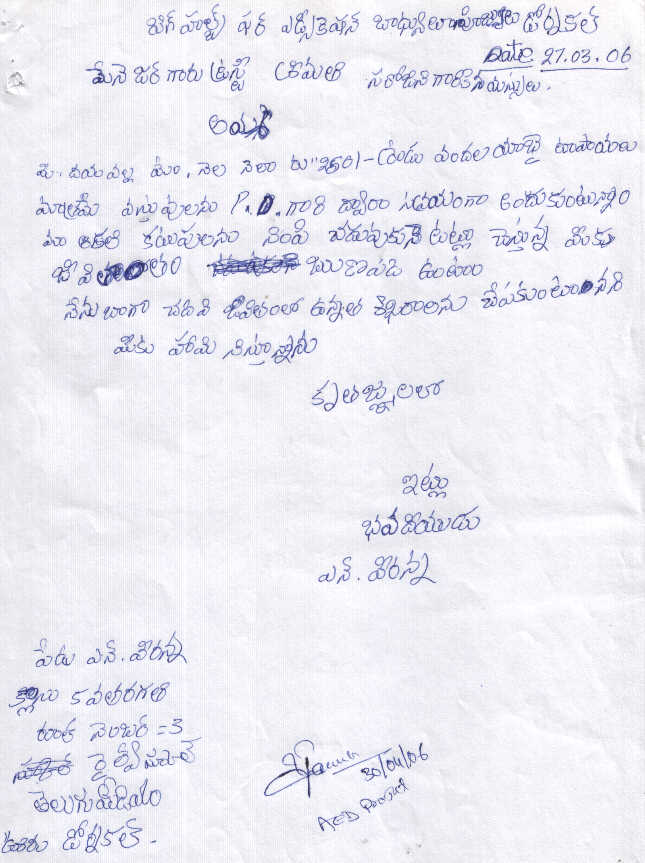 బిగ్ హెల్ప్ ఫర్ ఎడ్యుకేషన్ బాధ్యులు డోర్నకల్
Date 27.03.06
మేనెజర్ గారు ట్రస్టీ శ్రీమతి సరోజిని గారికి
అయ్య
మీ దయవల్ల మేం, నెల నెలా రు"250/- రెండు వందల యాబై రూపాయలు
వస్తువులను P.D. గారి ద్వారా అందుకుంటున్నాం
మా ఆకలి కడుపులను నింపి చదువుకునె టట్లు చెస్తున్న మీకు
జీవితాంతం ఋణపడి ఉంటాం
నేను బాగా చదివి జీవితంలో ఉన్నత శిఖరాలను చేపకుంటానని
మీకు హామి నిస్తూన్నాను
కృతజ్ఞులతో
ఇట్లు
భవదీయుడు
ఎన్. వీరన్న
పేరు ఎన్. వీరన్న
క్లాసు 5వ తరగతి
నెంబర్ = 3
రైల్వే స్కూల్
తెలుగు మీడియం
ఊరు డోర్నకల్.
30/04/06